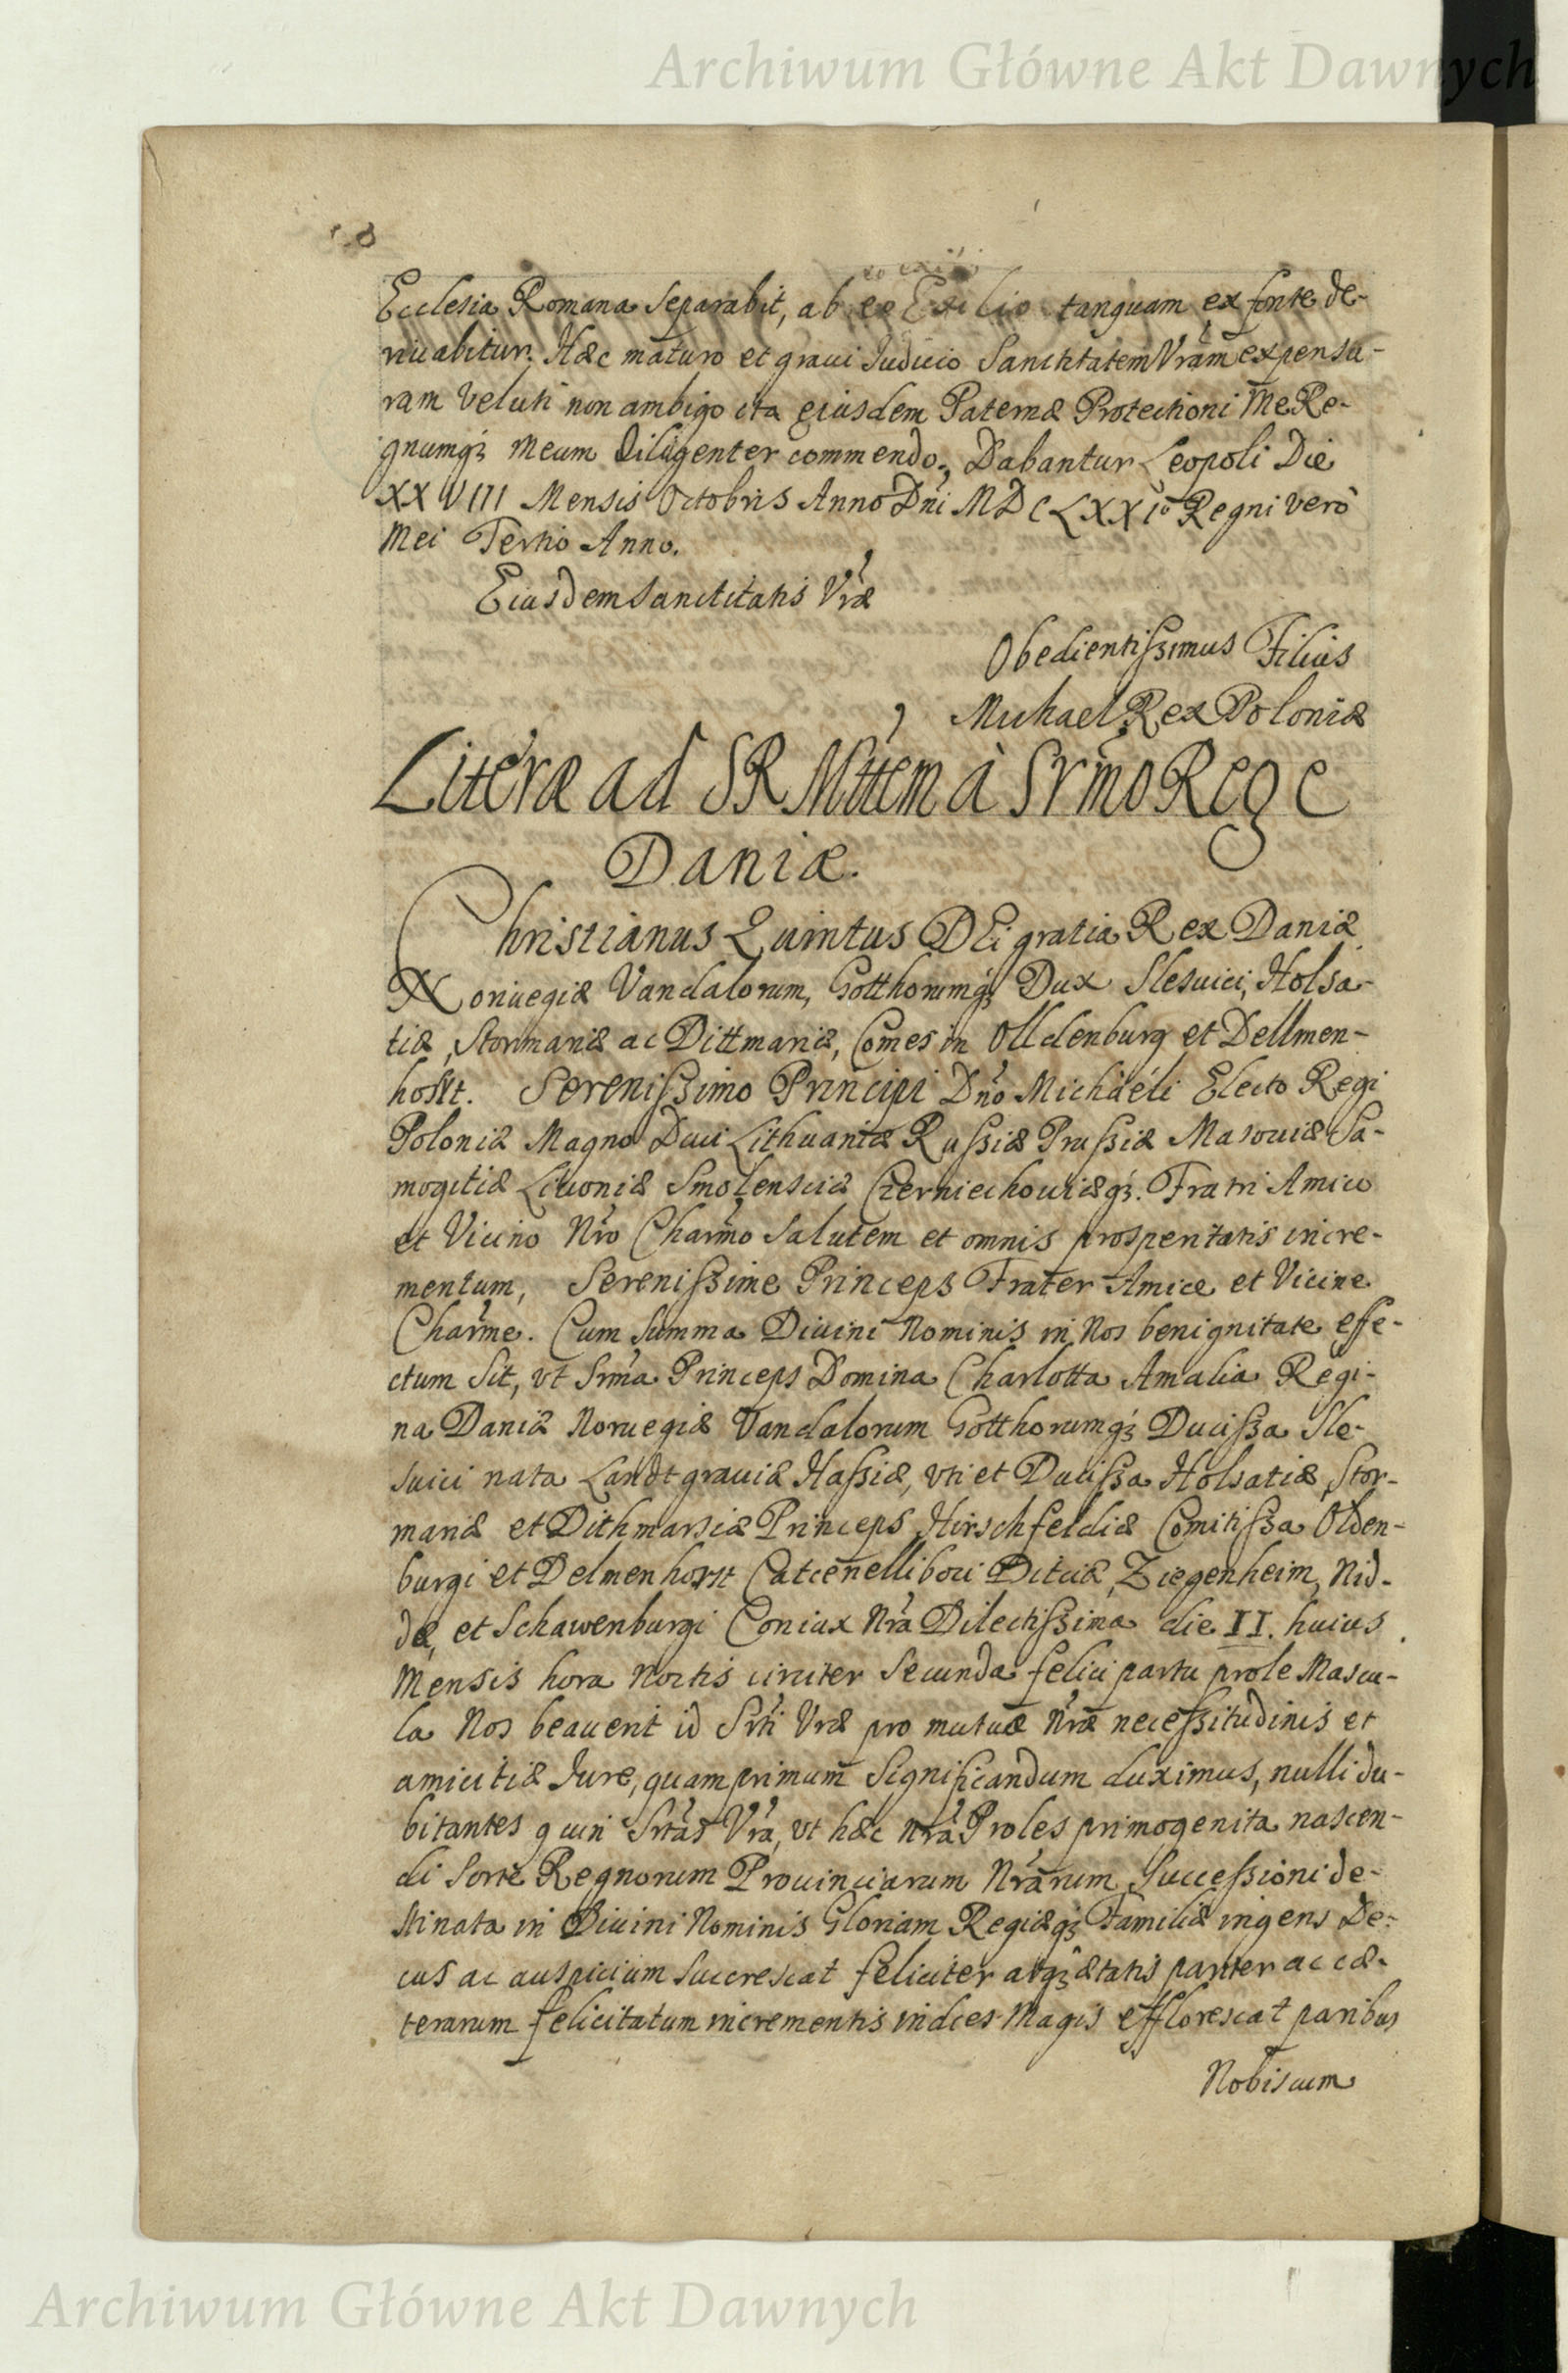 Archiwum Główne Akt Dawnych
Ecclesia Romana separabit, ab eo Exilio tanquam ex fonte de-
riuabitur. Hæc maturo et graui Judicio Sanctitatem Vram expensu-
ram veluti non ambigo ita eiusdem Paternæ Protectioni Me Re-
gnumq3 meum diligenter commendo. Dabantur Leopoli Die
XXVIII Mensis Octobris Anno Dni MDCLXXIº Regni vero
Mei Tertio Anno.
Eiusdem Sanctitatis Vræ
Obedientissimus Filius
Michael Rex Poloniæ
Literæ ad SR Mttem à Srmo Rege
Daniæ.
Christianus Quintus DEi gratia Rex Daniæ
Noruegiæ Vandalorum, Gotthorumq3 Dux Slesuici, Holsa-
tiæ, Stormaniæ ac Dittmariæ, Comes in Olldenburg et Dellmen-
horst. Serenissimo Principi Dno Michaéli Electo Regi
Poloniæ Magno Duci Lithuaniæ Russiæ Prussiæ Masouiæ Sa-
mogitiæ Liuoniæ Smolensciæ Czerniechouiæq3. Fratri Amico
et Vicino Nro Charmo salutem et omnis prosperitatis incre-
mentum, Serenissime Princeps Frater Amice et Vicine
Charme. Cum summa Diuini Nominis in Nos benignitate effe-
ctum sit, vt Srma Princeps Domina Charlotta Amalia Regi-
na Daniæ Noruegiæ Vandalorum Gotthorumq3 Ducissa Sle-
suici nata Landtgrauiæ Hassiæ, vti et Ducissa Holsatiæ Stor-
mariæ et Dithmarsiæ Princeps Hirschfeldiæ Comitissa Olden-
burgi et Delmenhorst Catcenelliboci Ditciæ, Ziegenheim, Nid-
dæ, et Schawenburgi Coniux Nra Dilectissima die II. huius
Mensis hora Noctis circiter secunda felici partu prole Mascu-
la Nos beauerit id Srti Vræ pro mutuæ Nræ necessitudinis et
amicitiæ Jure, quamprimum significandum duximus, nulli du-
bitantes quin Srtas Vra, vt hæc Nra Proles primogenita nascen-
di sorte Regnorum Prouinciarum Nrarum Successioni de-
stinata in Diuini Nominis Gloriam Regiæq3 Familiæ ingens De-
cus ac auspicium succrescat feliciter atq3 ætatis pariter ac cæ-
terarum felicitatum incrementis indies magis efflorescat paribus
Nobiscum
Archiwum Główne Akt Dawnych